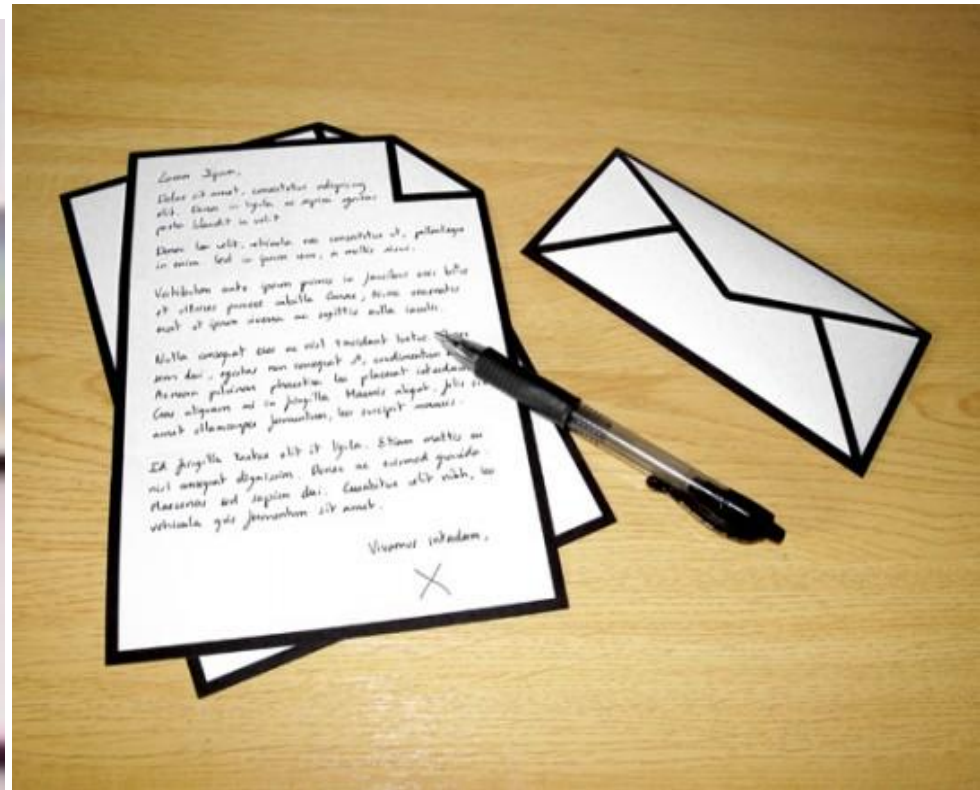 Lorem Ipsum,
Dolor sit amet, consectetur adipiscing
elit. Donec in ligula ac sapien egestas
porta blandit in velit
Donec leo velit, vehicula nec consectetur ut, pellentesque
in enim. Sed in ipsum sem, a mollis risus.
Vestibulum ante ipsum primis in faucibus orci luctus
et ultrices posuere cubilia Curae; Fusce venenatis
erat et ipsum viverra ac sagittis nulla iaculis.
Nulla consequat eros ac nisl tincidunt luctus. Donec
sem dui, egestas non consequat ut, condimentum
Aenean pulvinar pharetra leo placerat interdum
Cras aliquam mi in fringilla. Mauris aliquet, felis
amet ullamcorper fermentum, leo suscipit mauris.
Id fringilla tortor elit it ligula. Etiam mattis
nisl consequat dignissim. Donec ac euismod gravida
Maecenas sed sapien dui. Curabitur velit nibh, leo
vehicula quis fermentum sit amet.
Vivamus interdum,
X